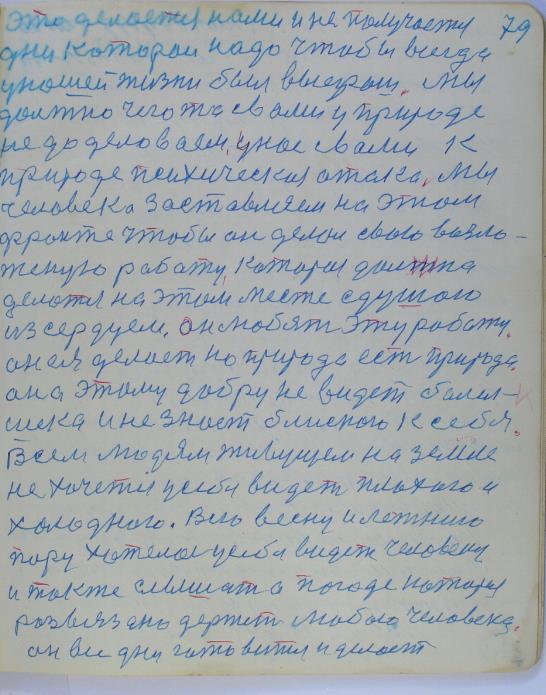 это делается нами и не получается 79
дни которой надо чтобы всегда
у нашей жизни был выеграш. Мы
должно чегота с вами у природе
не доделоваем, у нас с вами к
природе психическая атака. Мы
человека заставляем на этом
фронте чтобы он делал свою возло-
женую работу, которая должна
делатся на этом месте с душою
и з сердцем. он любят эту работу.
он ея делает но природа ест природа.
она этому добру не видет
и не знает блиского к себя.
Всем людям живущем на земле
не хочется у себя видет плохого и
холодного. Всю весну и летнию
пору хотелос у себя видет человеку
и также слышат о погоде которая
развязано держит любого человека.
он все дни готовится и делает